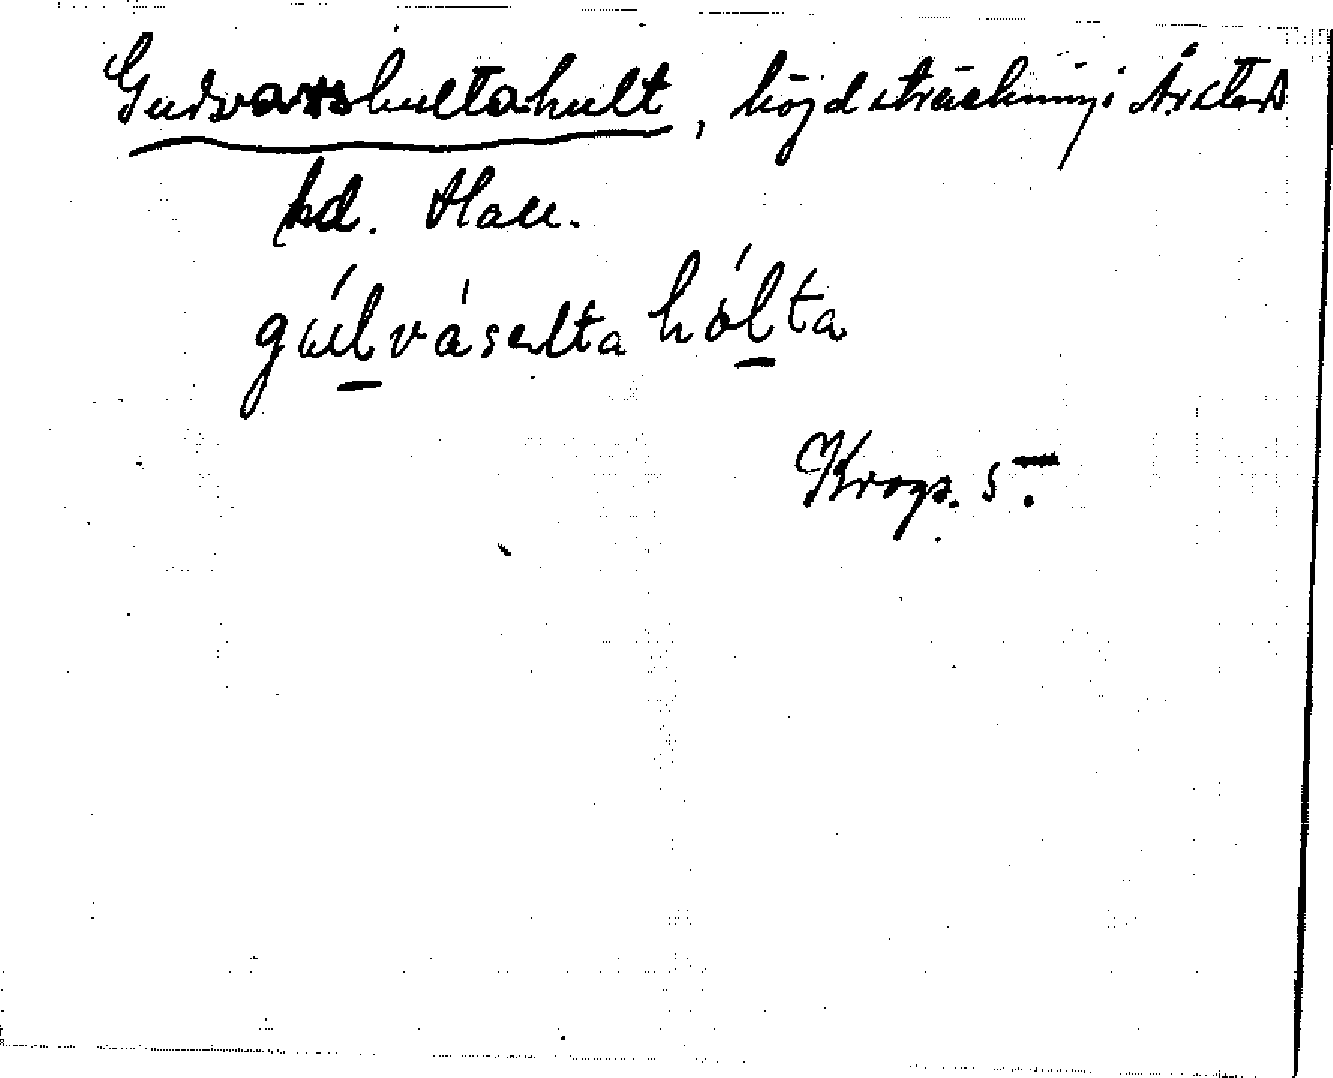 Gudvarshultahult, höjdsträckning i Årstads
hd. Hall.
gúlváselta hólta
Krogs. 5.